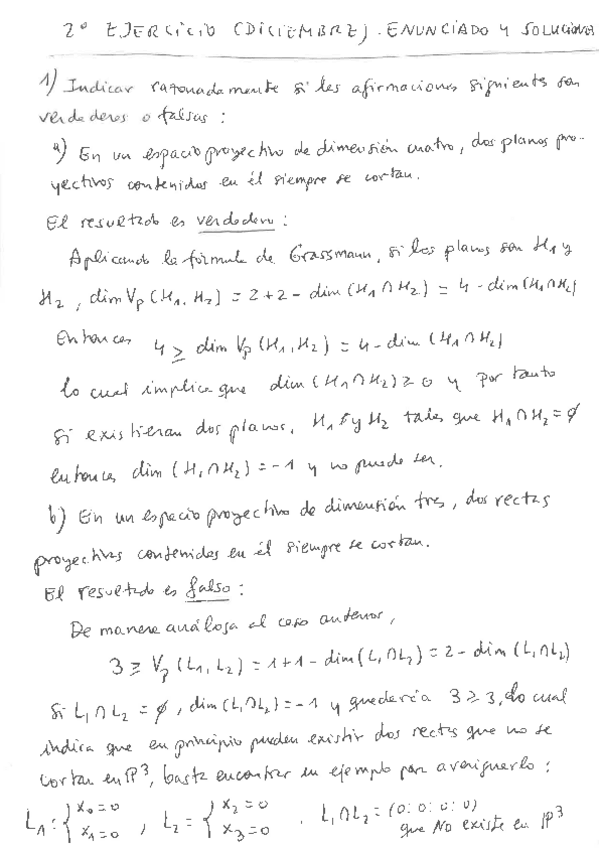 2º EJERCICIO (DICIEMBRE). ENUNCIADO Y SOLUCIONES
1) Indicar razonadamente si las afirmaciones siguientes son
verdaderas o falsas :
a) En un espacio proyectivo de dimensión cuatro, dos planos pro-
yectivos contenidos en él siempre se cortan.
El resultado es verdadero :
Aplicando la fórmula de Grassmann, si los planos son H₁ y
H₂, dim Vp (H₁, H₂) = 2+2 - dim (H₁∩H₂) = 4 - dim (H₁∩H₂)
Entonces 4 ≥ dim Vp (H₁, H₂) = 4 - dim (H₁∩H₂)
lo cual implica que dim (H₁∩H₂) ≥ 0 y por tanto
si existieran dos planos, H₁ y H₂ tales que H₁∩H₂ = ∅
entonces dim (H₁∩H₂) = -1 y no puede ser.
b) En un espacio proyectivo de dimensión tres, dos rectas
proyectivas contenidas en él siempre se cortan.
El resultado es falso :
De manera análoga al caso anterior,
3 ≥ Vp (L₁, L₂) = 1+1 - dim (L₁∩L₂) = 2 - dim (L₁∩L₂)
Si L₁∩L₂ = ∅, dim (L₁∩L₂) = -1 y quedaría 3 ≥ 3, lo cual
indica que en principio pueden existir dos rectas que no se
cortan en ℙ³, basta encontrar un ejemplo para averiguarlo :
L₁ : { x₀ = 0 x₁ = 0 , L₂ = { x₂ = 0 x₃ = 0 . L₁∩L₂ = (0:0:0:0)
que NO existe en ℙ³